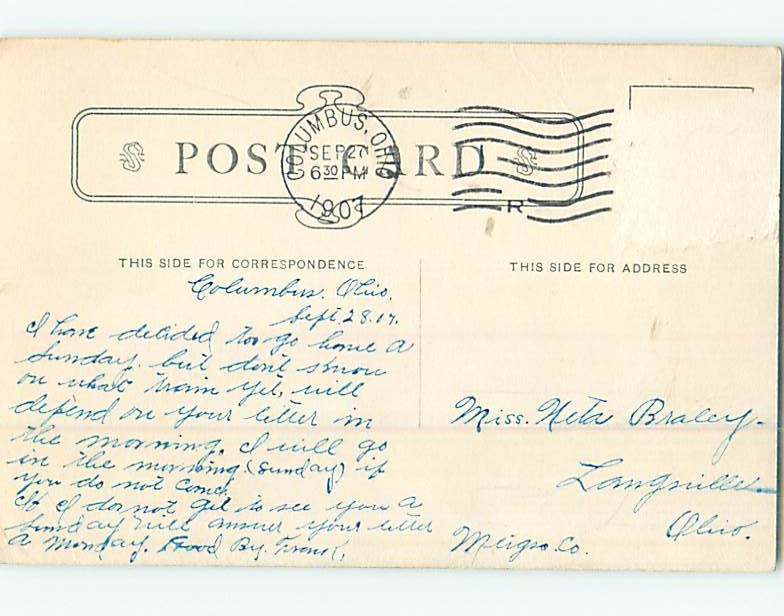 COLUMBUS, OHIO
SEP 27
6 30 PM
1907
R
POST CARD
THIS SIDE FOR CORRESPONDENCE
THIS SIDE FOR ADDRESS
Columbus. Ohio.
Sept. 28.07.
I have decided to go home a
Sunday. but don't know
on what train yet, will
depend on your letter in
the morning. I will go
in the morning (Sunday) if
you do not come.
If I do not get to see you a
Sunday will answer your letter
a Monday. Good By. Frank.
Miss. Neta Braley.
Langsville
Ohio.
Meigs. Co.